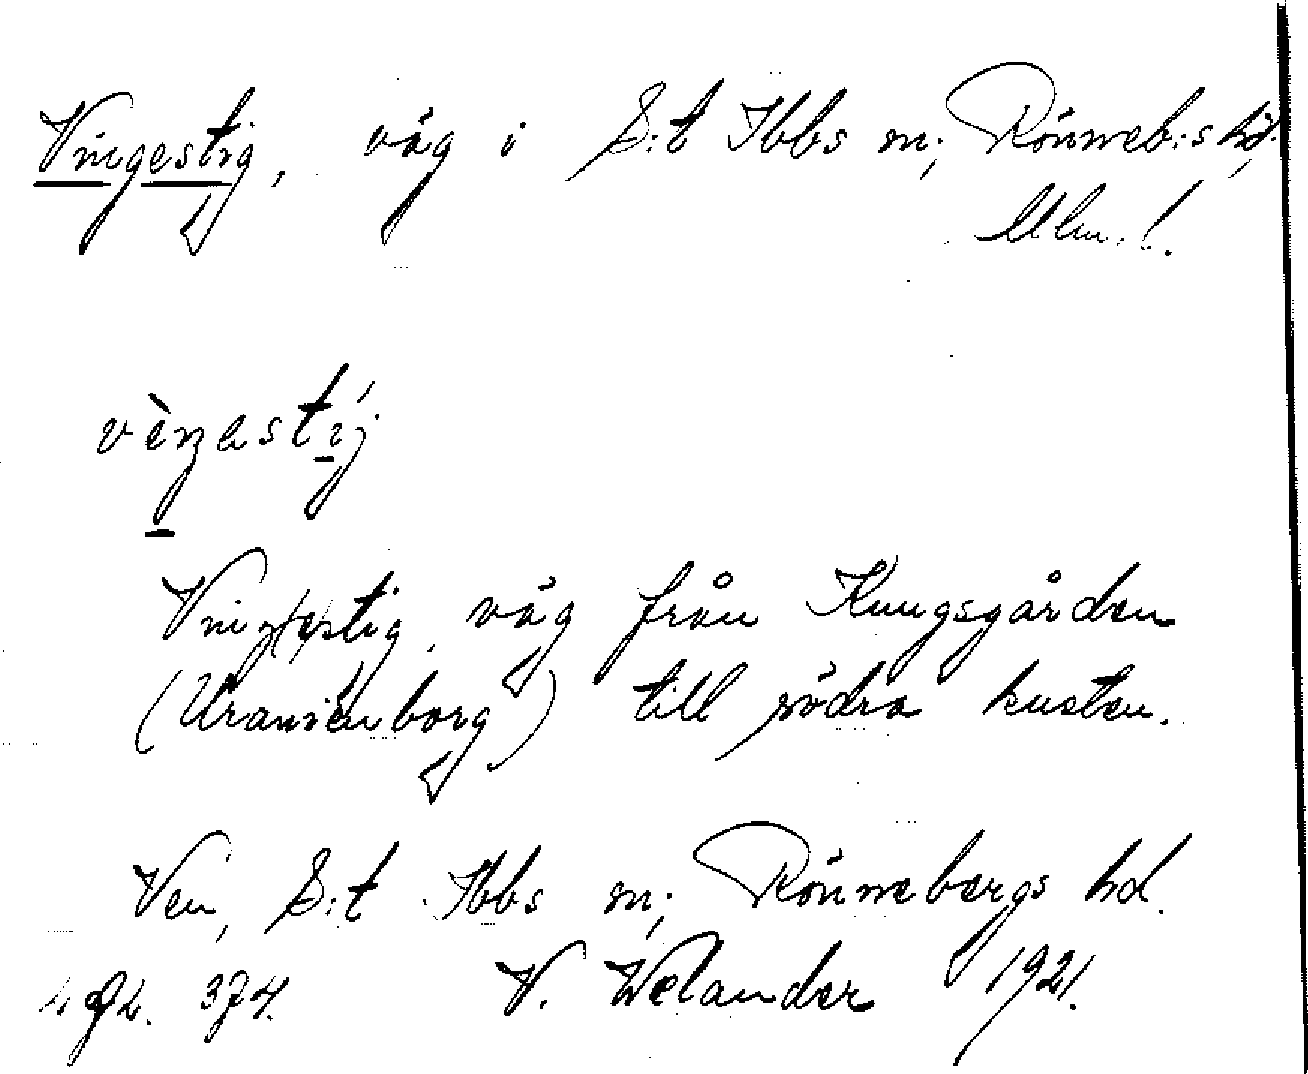 Vingestig, väg i S:t Ibbs sn; Rönneb:s hd.
Mlm. l.
vèŋastíj
Vingestig, väg från Kungsgården
(Uranienborg) till södra kusten.
Ven, S:t Ibbs sn; Rönnebergs hd.
374. V. Welander 1921.